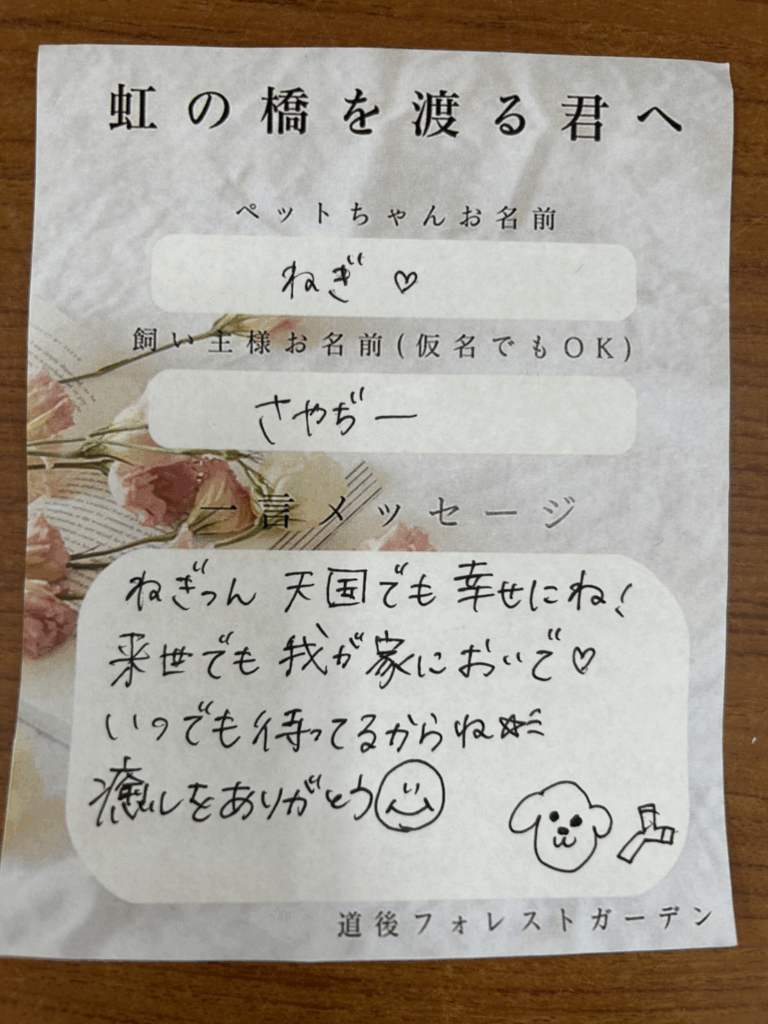 虹の橋を渡る君へ
ペットちゃんお名前
ねぎ♡
飼い主様お名前(仮名でもOK)
さやぢー
一言メッセージ
ねぎつん 天国でも幸せにね!
来世でも我が家においで♡
いつでも待ってるからね☆ミ
癒しをありがとう
道後フォレストガーデン